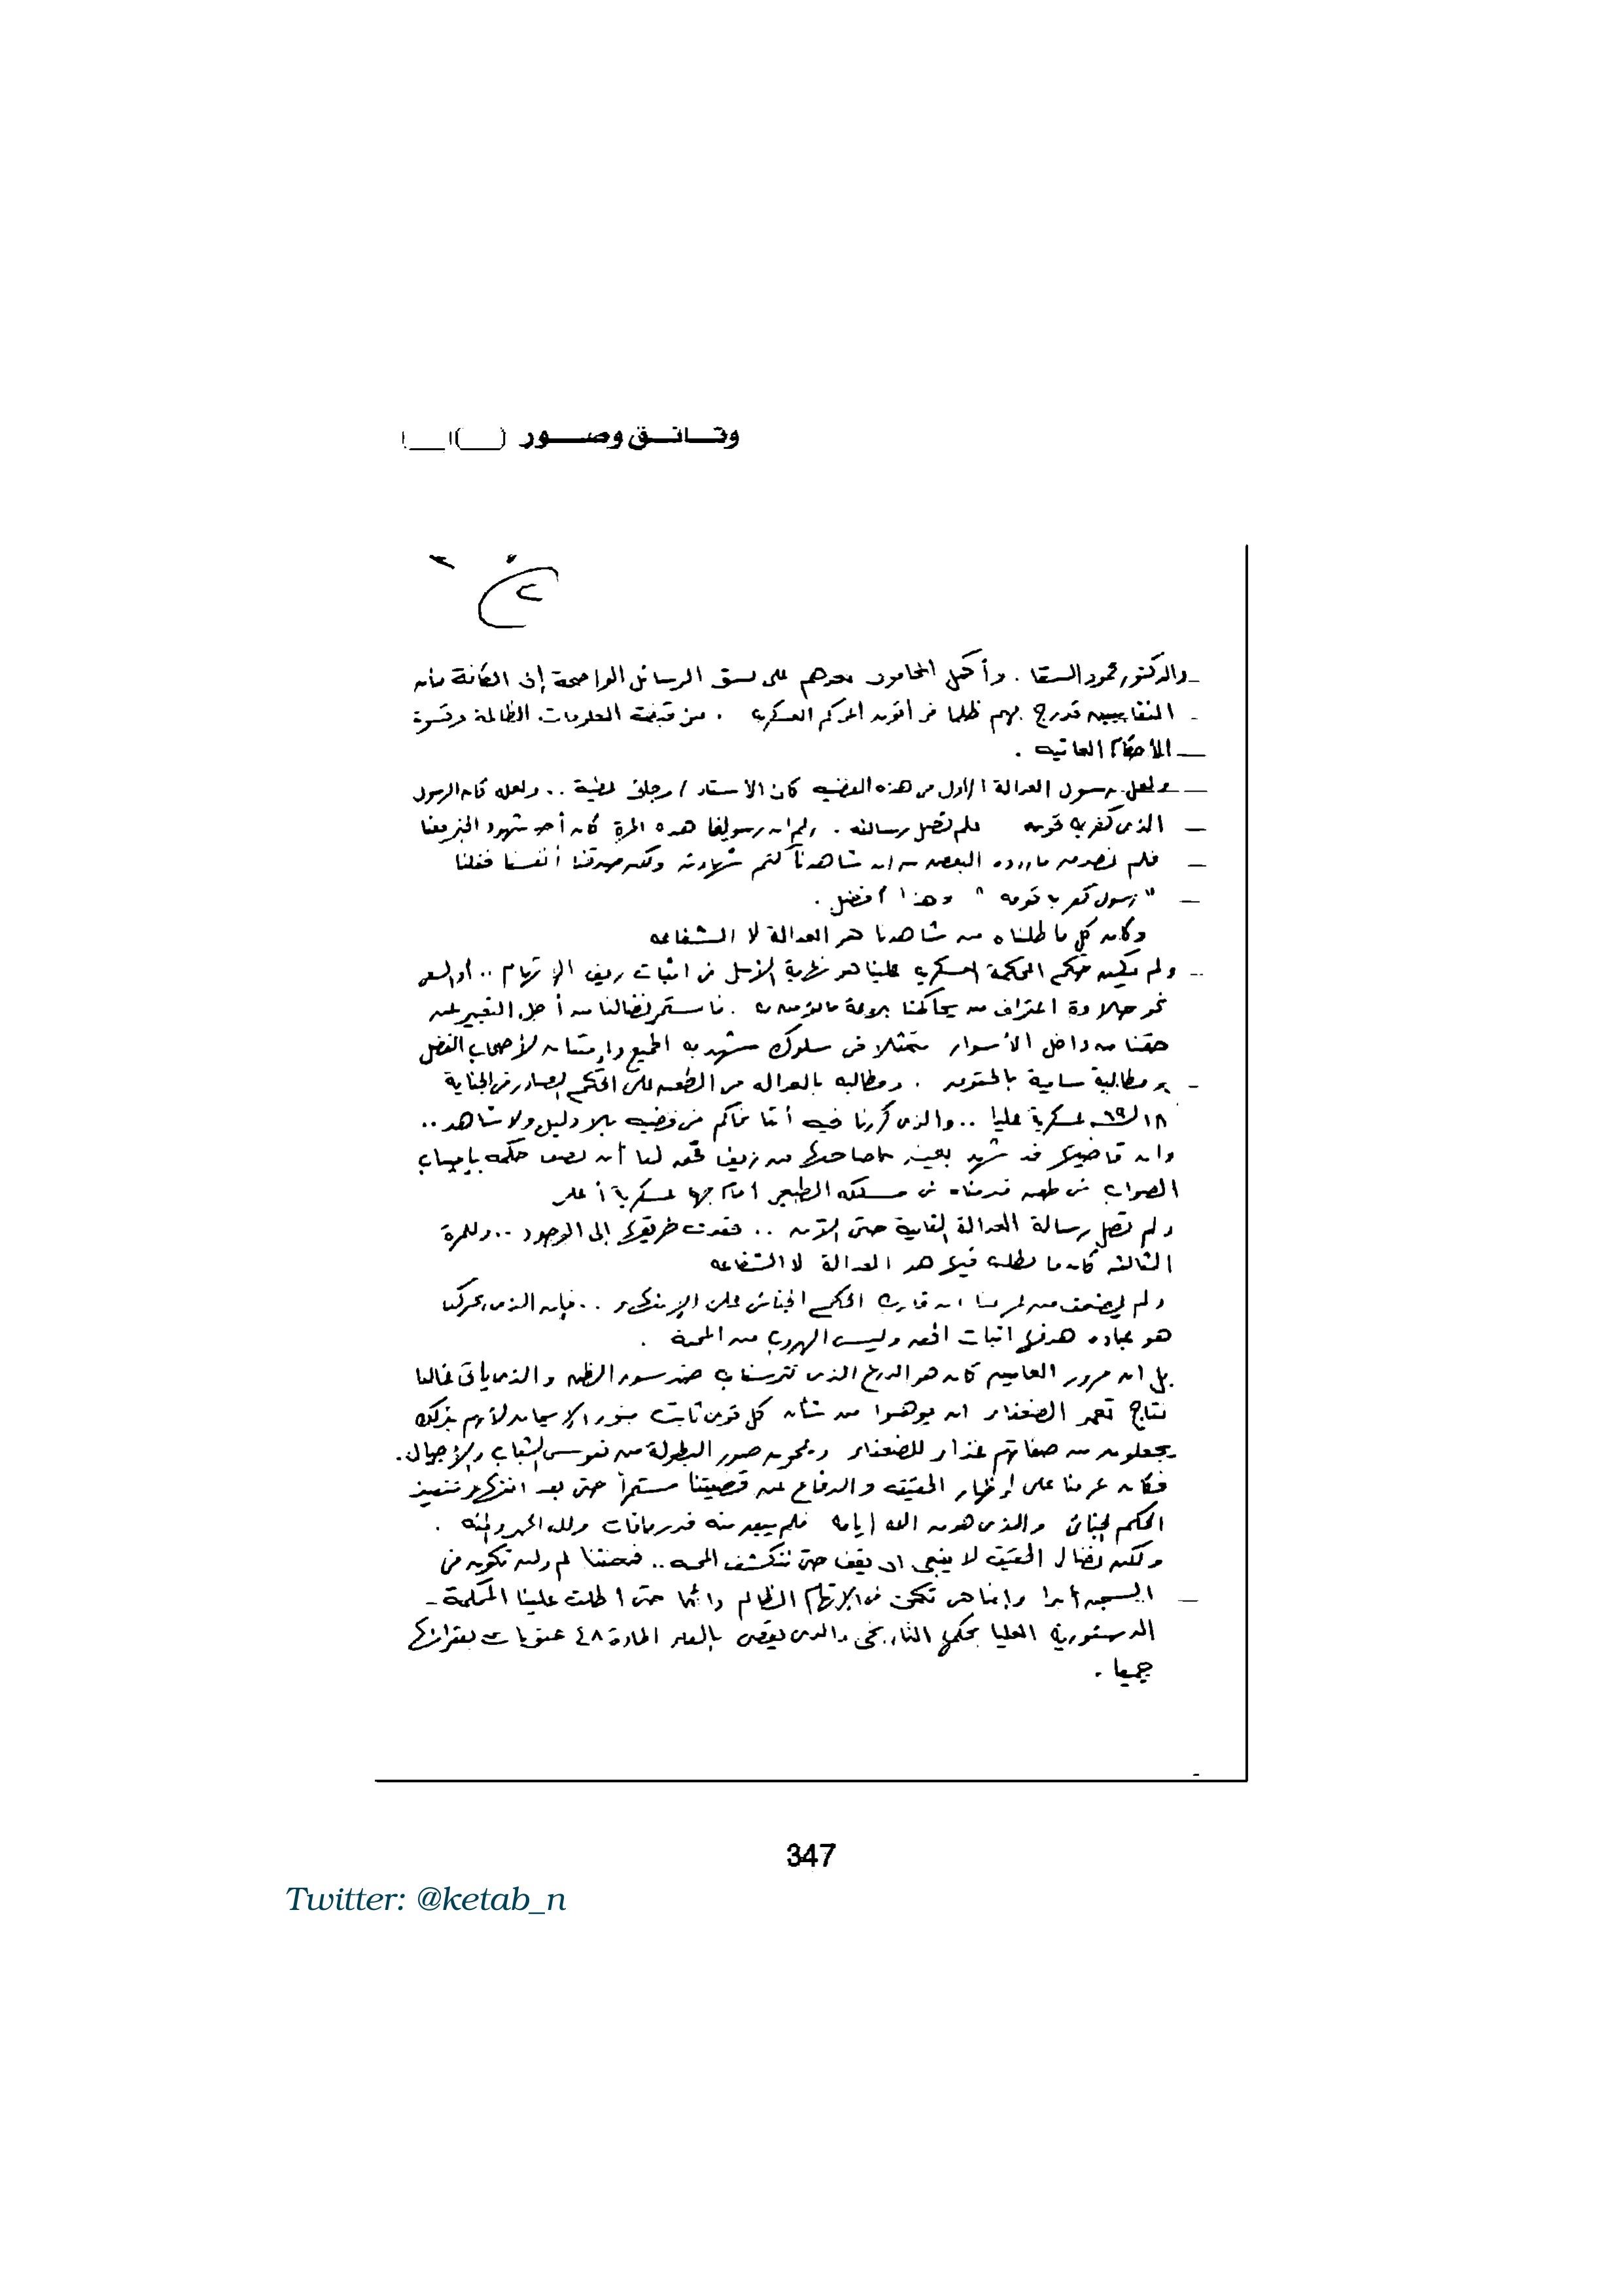 وثـائـق وصـور
٢
والدكتور محمود السقا . وأكمل المحامون بعدهم على نسق الرسائل الواضحة إلى الكافة بأن
النقابيين قد زج بهم ظلما فى أتون الحكم العسكرى . من قبضة المعلومات الظالمة وقسوة
الأحكام العاتيه .
ولعل رسول العدالة الأول من هذه القضيه كان الأستاذ / رجائى عطية .. ولعله كان الرسول
الذى كفر به قومه فلم تصل رسالته . ولم ان رسولنا هذه المرة كان أحد شهود الخبر معنا
فلم نصدق ما ردده البعض من ان شاهدنا كتم شهادته ولكن صدقنا أنفسنا فقلنا
" رسول كفر به قومه " وهذا أفضل .
وكان كل ما طلبناه من شاهدنا هو العدالة لا الشفاعه
ولم يكن حكم المحكمة العسكرى علينا هو نهاية الأمل فى اثبات زيف الإتهام .. أو السعى
نحو حلاوة اعتراف من يحاكمنا بروعة ما نؤمن به . فاستمر نضالنا من أجل التعبير عن
حقنا من داخل الأسوار متمثلا فى سلوك مشهود به الجميع وإمتنان لأصحاب الفضل
ومطالبة سامية بالحقوق . ومطالبه بالعداله من الطعن على الحكم الصادر فى الجناية
١٨ لـ ٩٩ عسكرية عليا .. والذى كررنا فيه أننا نحاكم فى قضيه بلا دليل ولا شاهد ..
وان قاضيها قد شهد بعينه ما صاحبها من زيف فحق لنا أن نصف حكمه بإجتناب
الصواب فى طعن قدمناه فى مسلكه الطبيعى أمام جهة عسكرية أعلى
ولم تصل رسالة العدالة الثانية حتى الآن .. فقدت طريقها إلى الوجود .. وللمرة
الثالثه كان ما نطلبه فيها هو العدالة لا الشفاعه
ولم يضعف من عزمنا ان قارب الحكم الجنائى على الإنتهاء .. فإن الذى يحركنا
هو عباده هدفها اثبات الحق وليس الهروب من المحنة .
بل ان مرور العامين كان هو الدرع الذى تترسنا به ضد سوء الظن والذى يأتى غالبا
نتاج تعمد الضعفاء ان يوهنوا من شأن كل قوى ثابت بنور الإيمان لأنهم بذلك
يجعلون من صفاتهم عذار للضعفاء ويمحون صور البطولة من نفوس الشباب والأجيال .
فكان عزمنا على إظهار الحقيقه والدفاع عن قضيتنا مستمرا حتى بعد انتهاء تنفيذ
الحكم الجنائى والذى هون الله أيامه فلم يبعد منه قدر ما فات ولله الحمد والمنه .
ولكن نضال الحقيقة لا ينبغى ان يقف حتى تنكشف المحنه .. فمحنتنا لم ولن تكون فى
السجن أبدا وإنما هى تكمن فى الإتهام الظالم دائما حتى أطلت علينا المحكمة
الدستورية العليا بحكمها التاريخى والذى يقضى بإلغاء المادة ٤٨ عقوبات بفقراتها
جميعا .
347
Twitter: @ketab_n